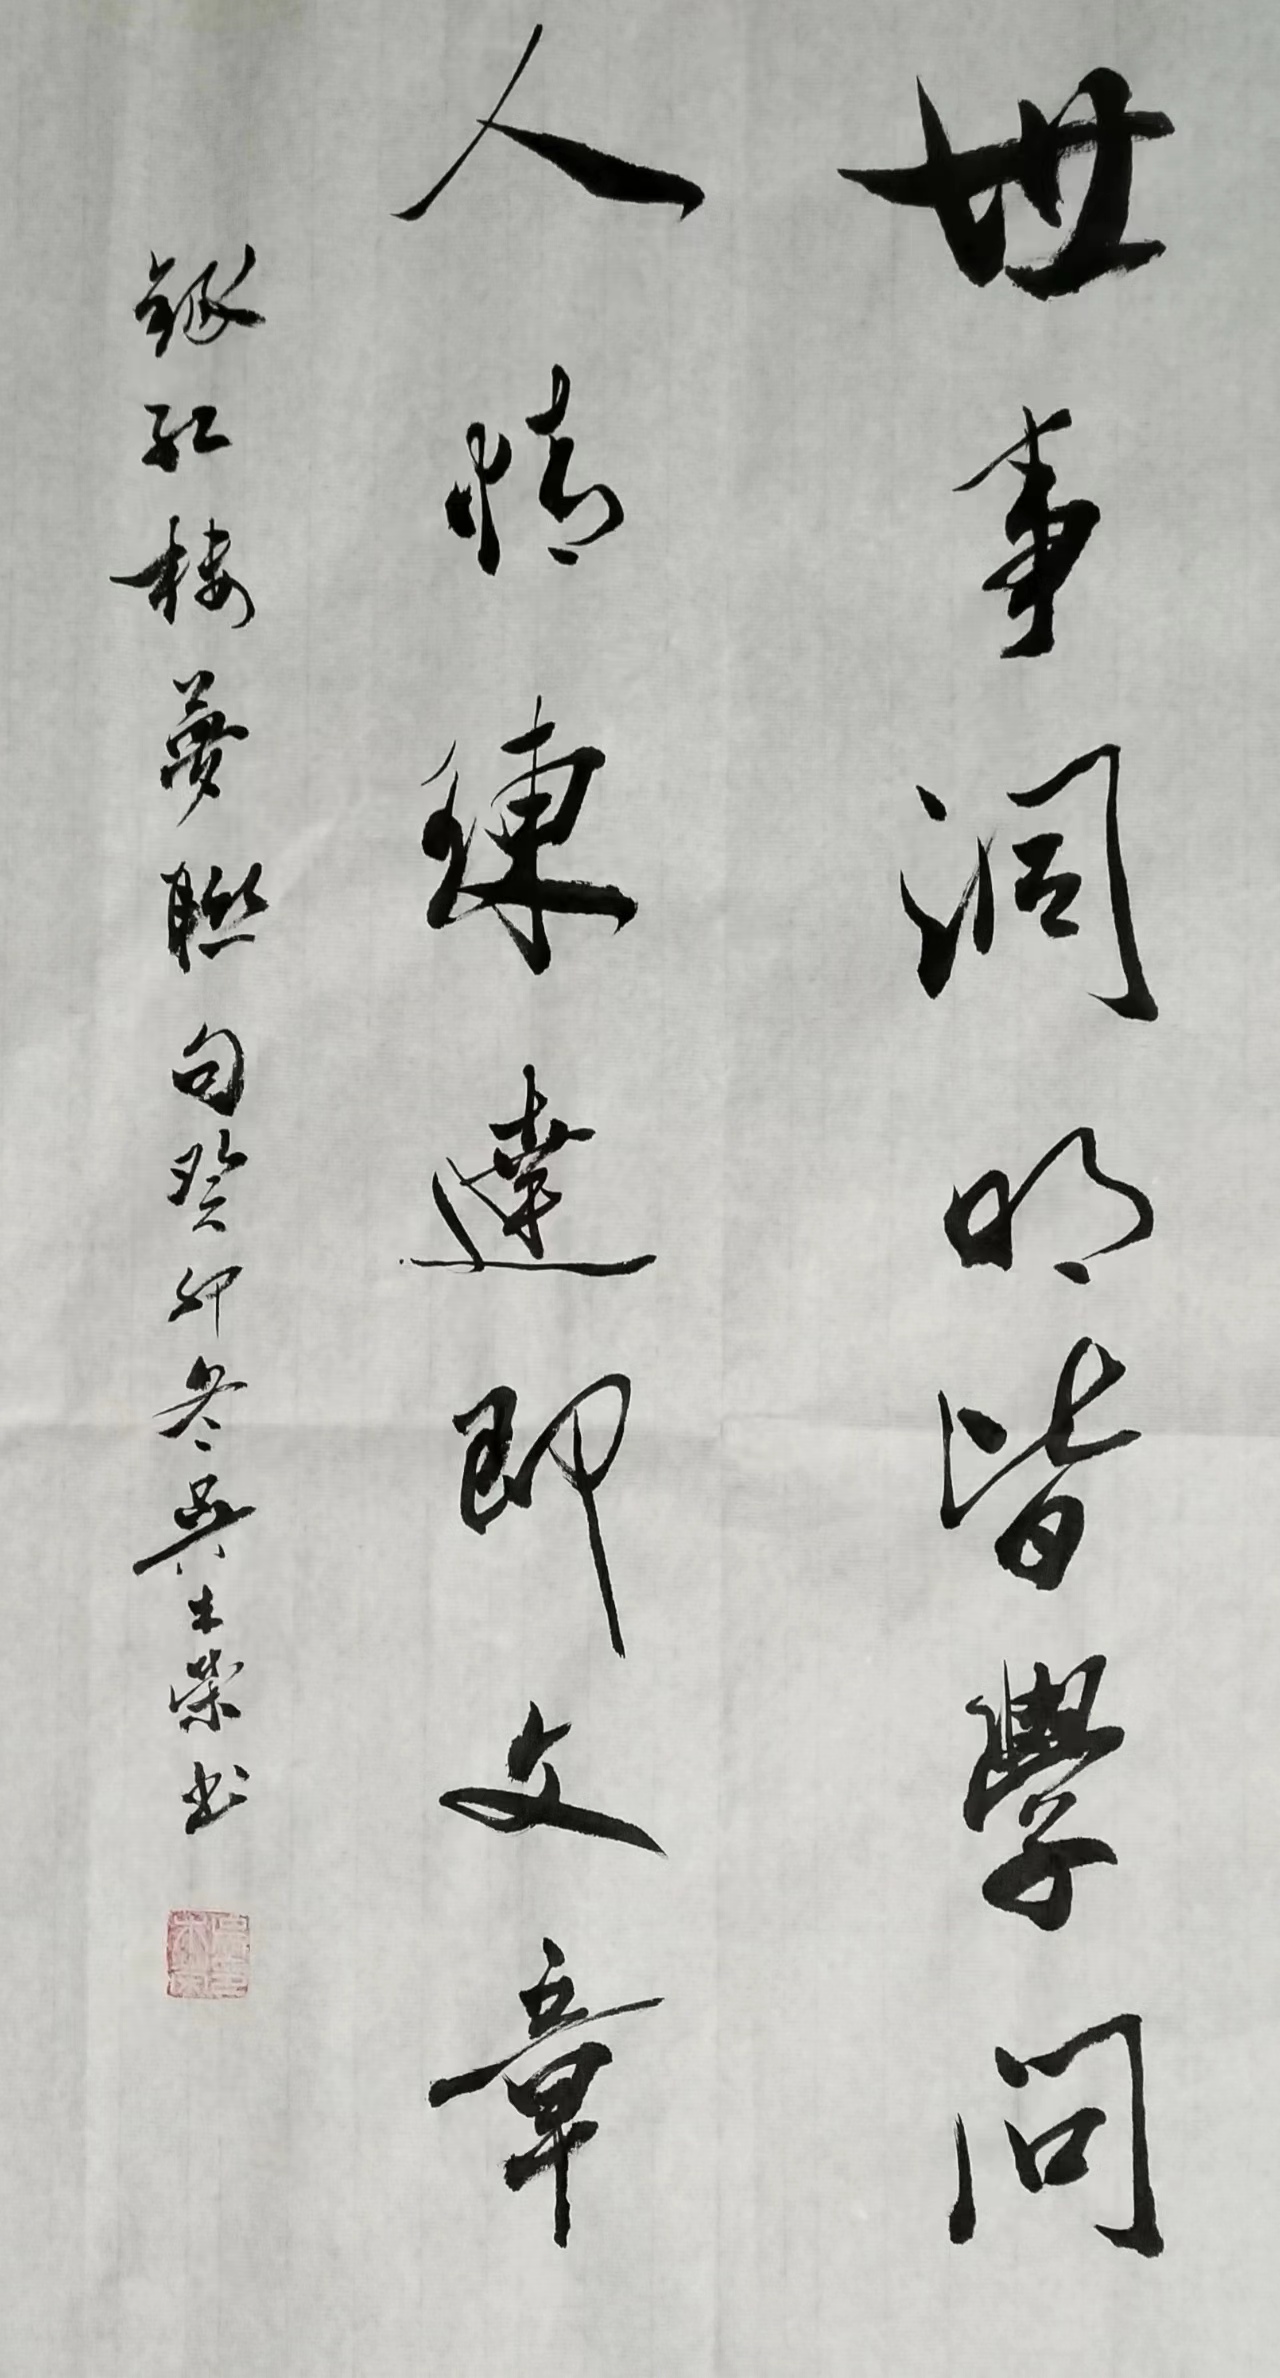 世事洞明皆學問
人情練達即文章
錄紅樓夢聯句癸卯冬吳木榮书